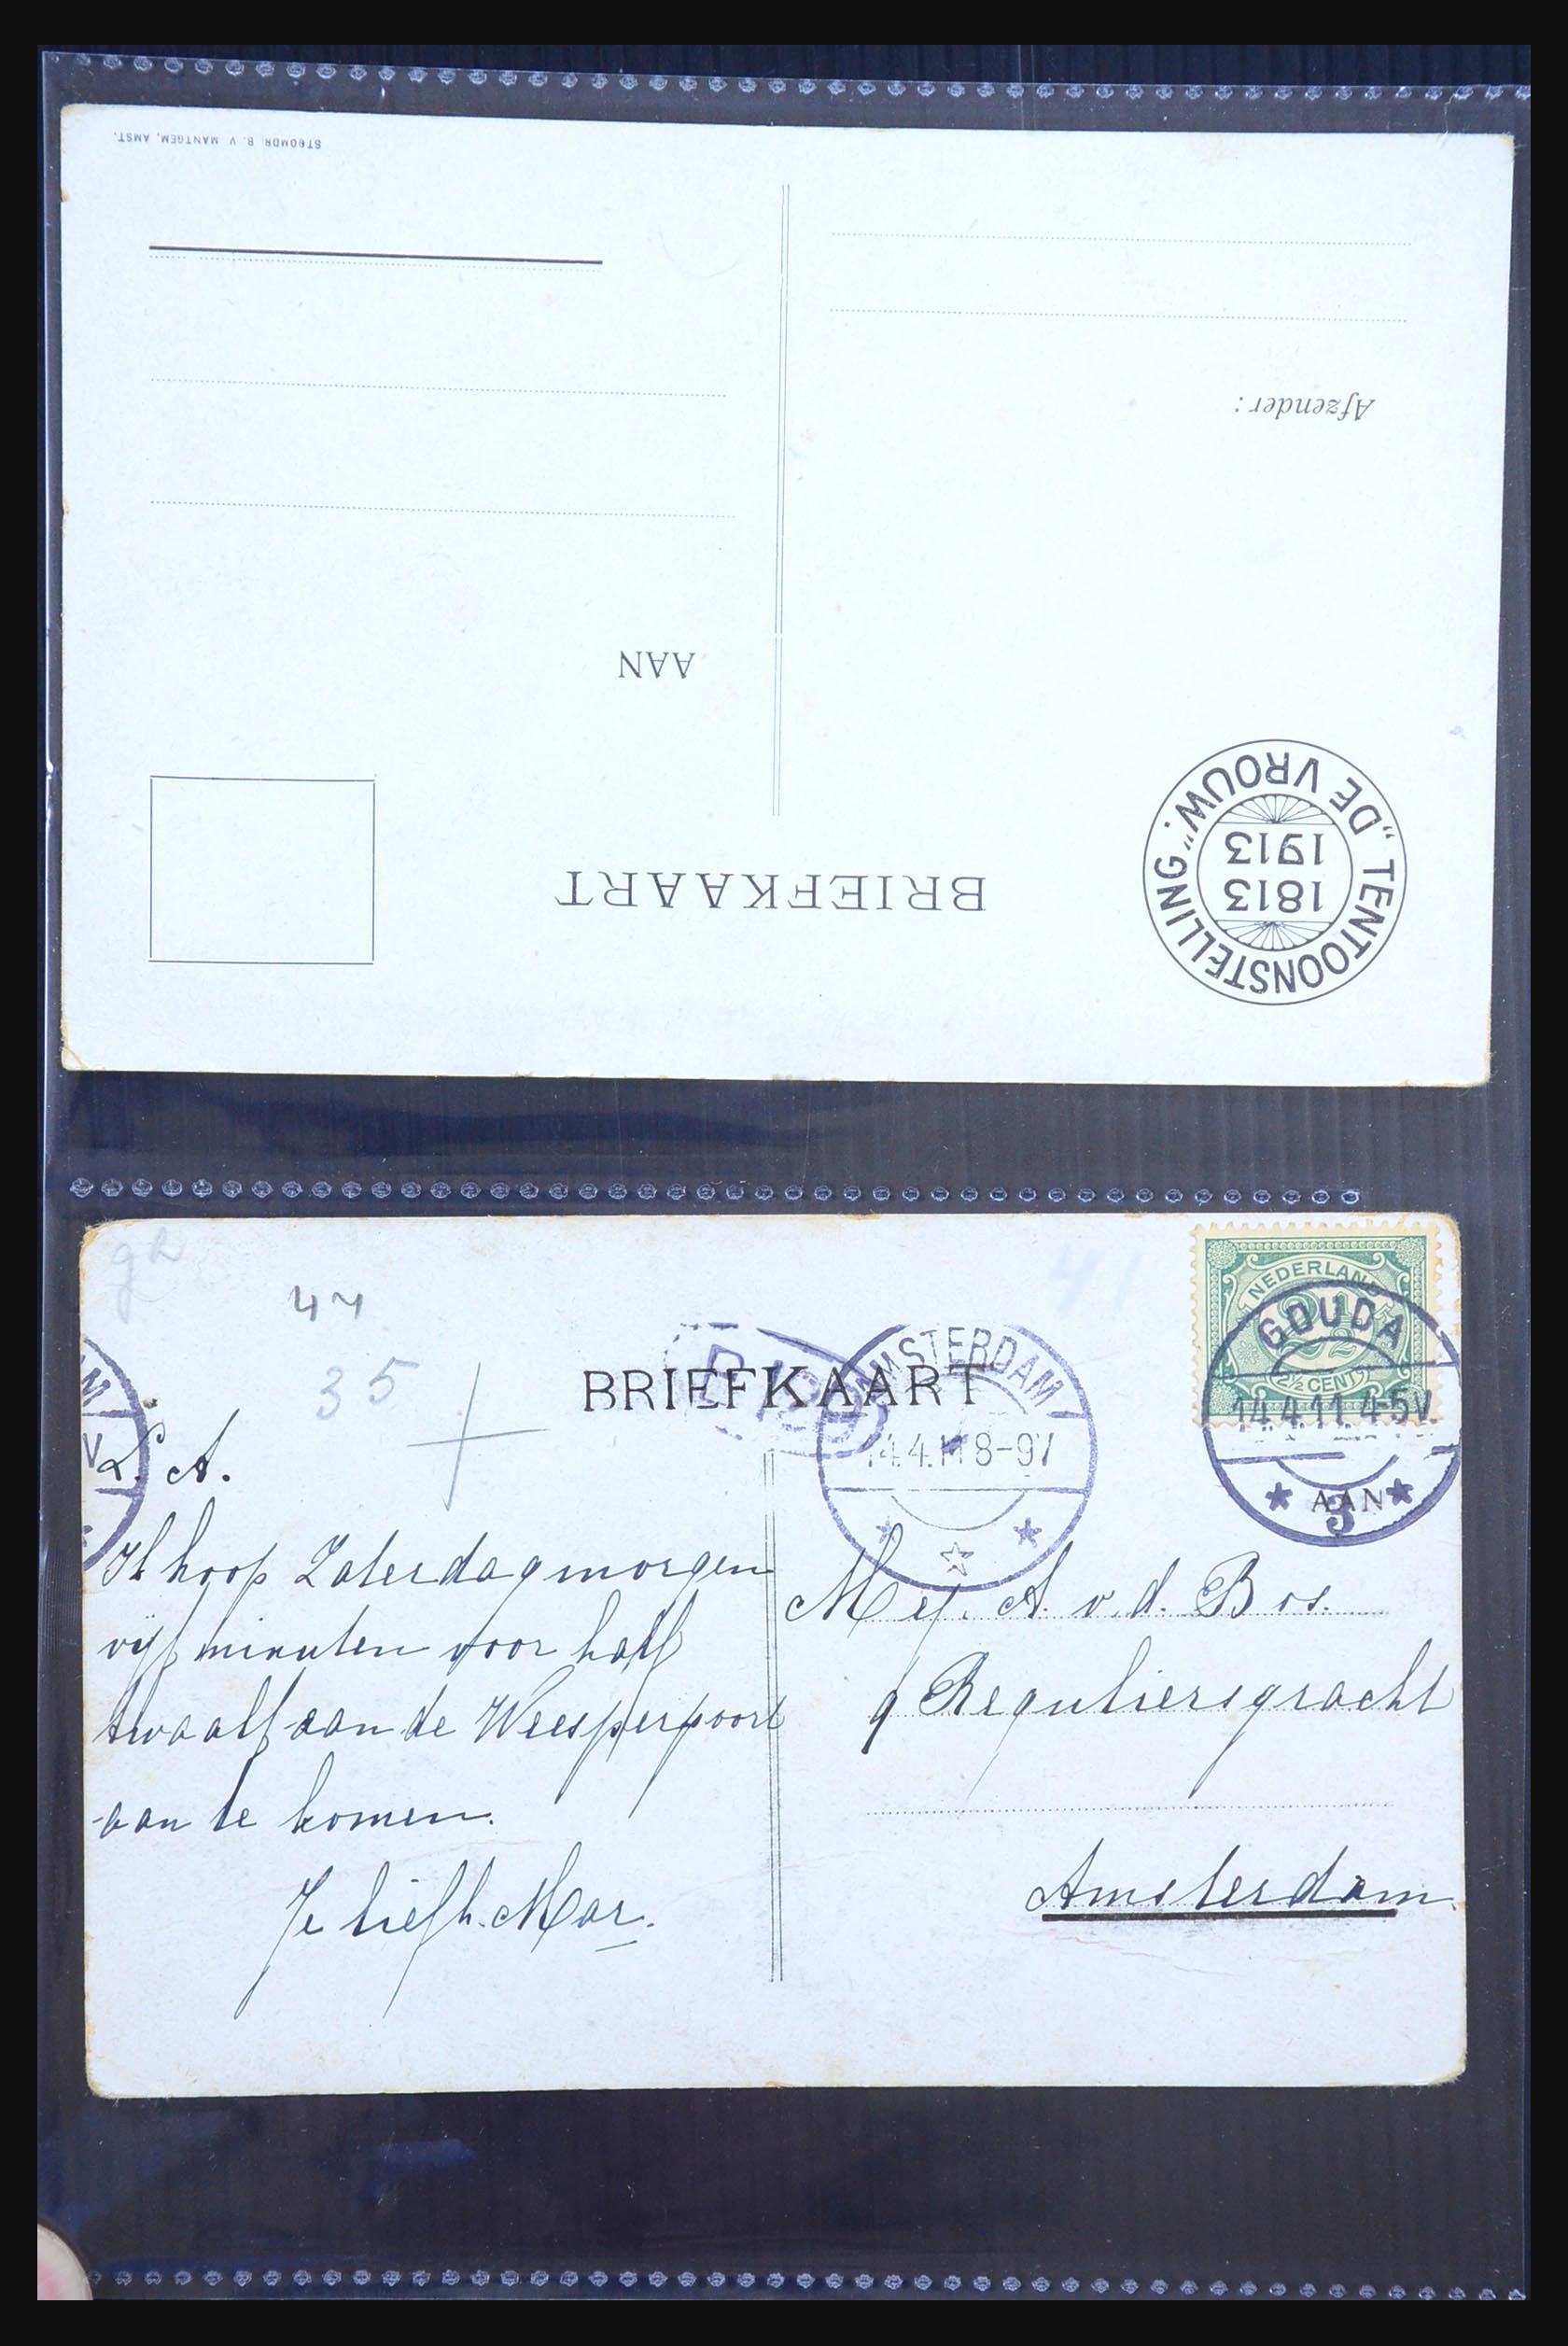 STOOMDR. B. V. MANTGEM, AMST.
Afzender:
AAN
BRIEFKAART
TENTOONSTELLING „DE VROUW“.
1813
1913
44
41
35
NEDERLAND
2½
2½ CENT
GOUDA
14.4.11.4-5V.
3
BRIEFKAART
AMSTERDAM
14.4.11 8-9V
AAN
L. A.
Ik hoop Zaterdagmorgen
vijf minuten voor half
twaalf aan de Weesperpoort
aan te komen.
Je liefh. Mar.
Mej. A. v. d. Bos.
9 Reguliersgracht
Amsterdam.